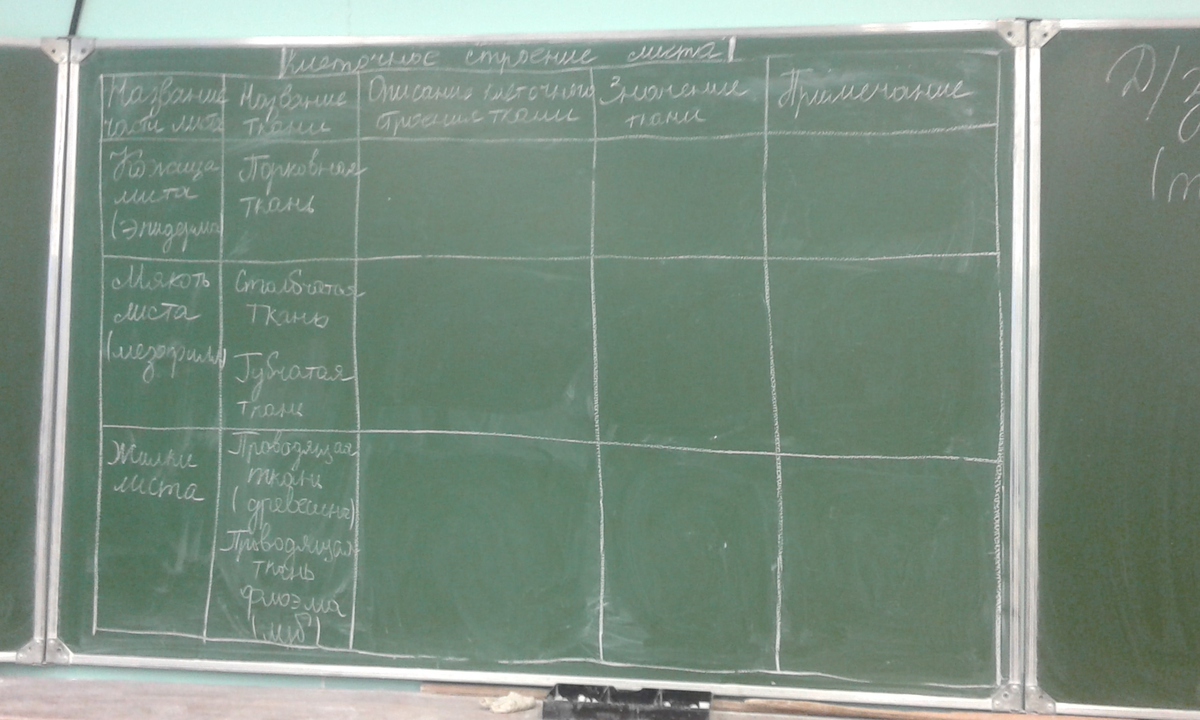 Клеточное строение листа
Название
части листа
Название
ткани
Описание клеточного
строения ткани
Значение
ткани
Примечание
Кожица
листа
(эпидерма
Покровная
ткань
Мякоть
листа
(мезофилл)
Столбчатая
ткань
Губчатая
ткань
Жилки
листа
Проводящая
ткань
(древесина)
Проводящая
ткань
флоэма
(луб)
Д/